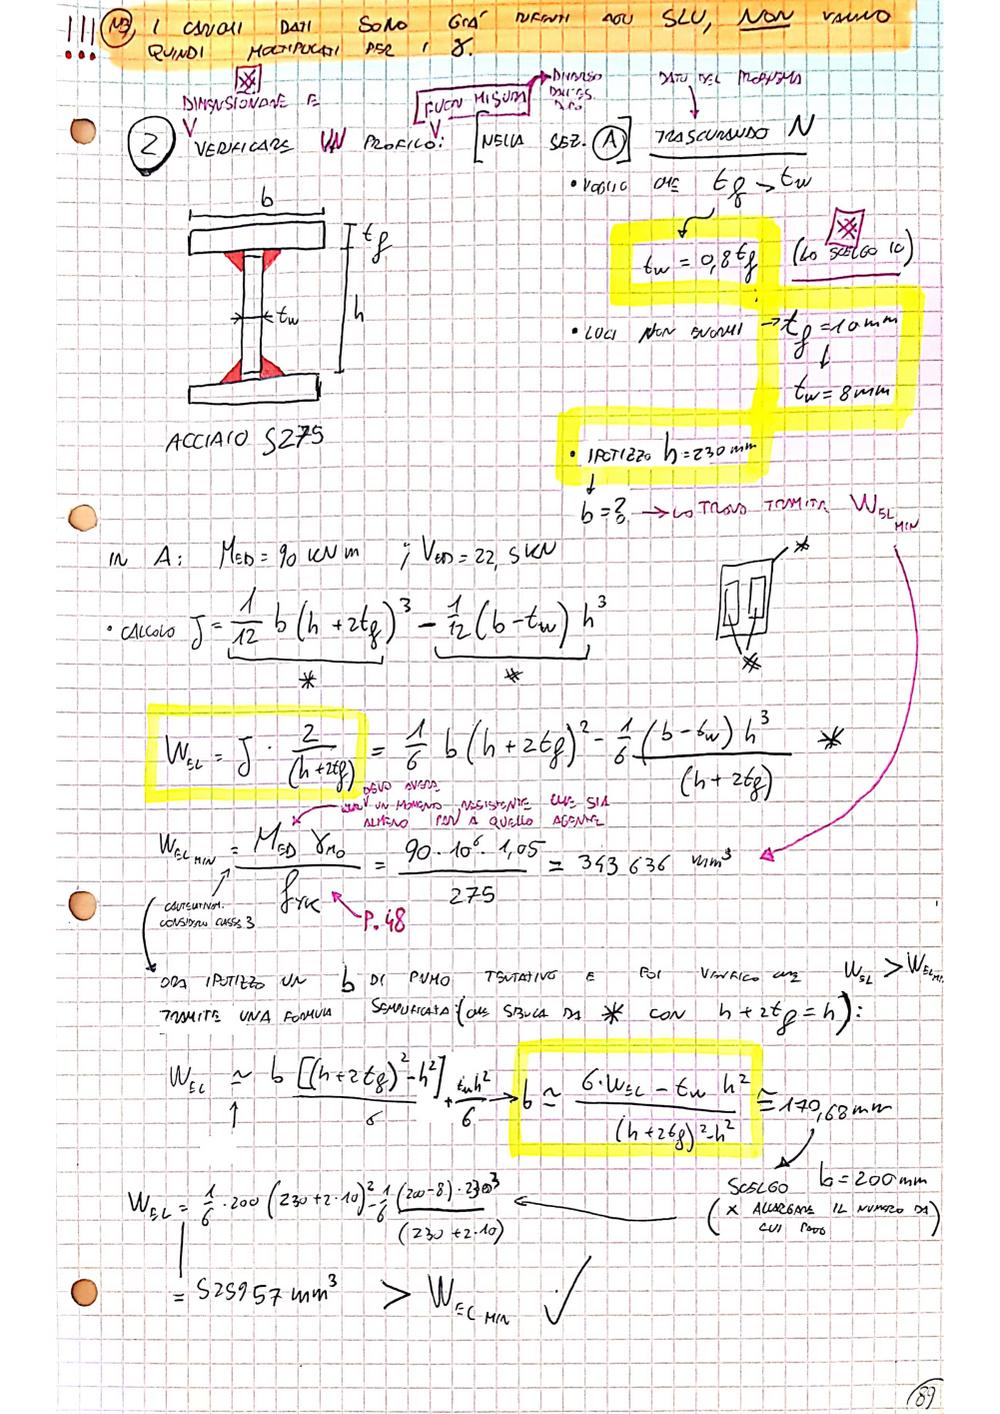 !!! NB, I CARICHI DATI SONO GIÀ RIFERITI AGLI SLU, NON VANNO
QUINDI MOLTIPLICATI PER I γ.
DIMENSIONARE E
FUORI MISURA
DIVERSO
DATO DEL PROBLEMA
2 VERIFICARE UN PROFILO: [NELLA SEZ. A] TRASCURANDO N
• VOGLIO CHE tf > tw
b
tf
tw = 0,8 tf (LO SCELGO IO)
tw
h
• LUCI NON ENORMI → tf = 10 mm
↓
tw = 8 mm
ACCIAIO S275
• IPOTIZZO h = 230 mm
↓
b = ? → LO TROVO TRAMITE WEL MIN
IN A: MED = 90 KN m ; VED = 22,5 KN
*
• CALCOLO J = 1/12 b (h + 2tf)³ - 1/12 (b - tw) h³
* *
*
WEL = J · 2/(h+2tf) = 1/6 b (h + 2tf)² - 1/6 (b - tw) h³/(h + 2tf) *
DEVO AVERE
UN MOMENTO RESISTENTE CHE SIA
ALMENO PARI A QUELLO AGENTE
WEL MIN = MED γM0/fYK = 90 · 10⁶ · 1,05/275 = 343 636 mm³
CAUTELATIVAM.
CONSIDERO CLASSE 3
P. 48
ORA IPOTIZZO UN b DI PRIMO TENTATIVO E POI VERIFICO CHE WEL > WEL MIN
TRAMITE UNA FORMULA SEMPLIFICATA (CHE SBUCA DA * CON h + 2tf = h):
WEL ≃ b [(h+2tf)² - h²]/6 + tw h²/6 → b ≃ 6·WEL - tw h²/(h+2tf)² - h² ≅ 170,68 mm
SCELGO b = 200 mm
(X ALLARGARE IL NUMERO DA
CUI PARTO)
WEL = 1/6 · 200 (230 + 2·10)² - 1/6 (200-8) · 230³/(230 + 2·10)
= 525957 mm³ > WEL MIN ✓
89